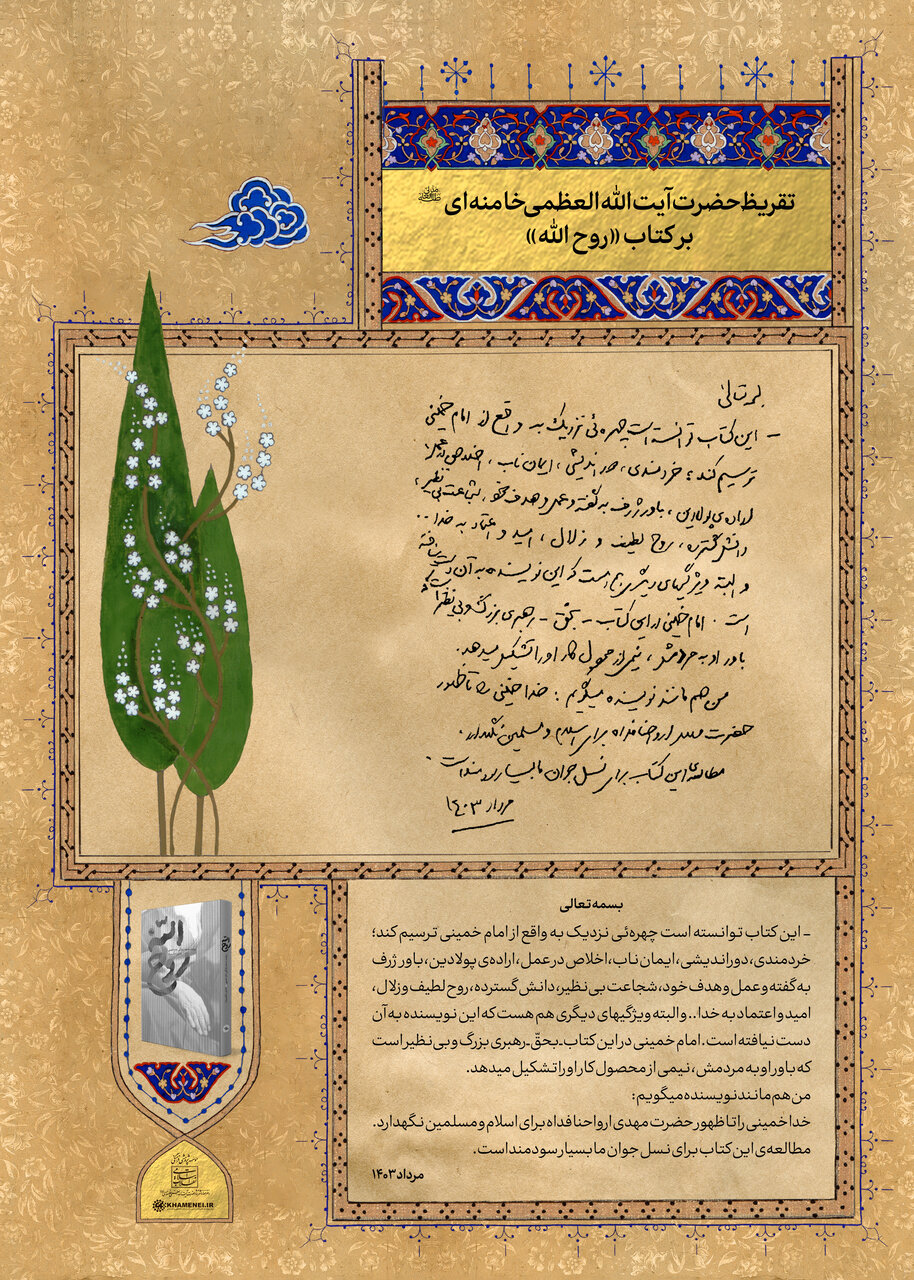 تقریظ حضرت آیت الله العظمی خامنه‌ای
بر کتاب «روح الله»
بسمه تعالی
- این کتاب توانسته است چهره‌ئی نزدیک به واقع از امام خمینی
ترسیم کند؛ خردمندی، دوراندیشی، ایمان ناب، اخلاص در عمل،
اراده‌ی پولادین، باور ژرف به گفته و عمل و هدف خود، شجاعت بی‌نظیر،
دانش گسترده، روح لطیف و زلال، امید و اعتماد به خدا..
و البته ویژگیهای دیگری هم هست که این نویسنده به آن دست نیافته
است. امام خمینی در این کتاب - بحق - رهبری بزرگ و بی‌نظیر است که
باور او به مردمش، نیمی از محصول کار او را تشکیل میدهد.
من هم مانند نویسنده میگویم: خدا خمینی را تا ظهور
حضرت مهدی ارواحنا فداه برای اسلام و مسلمین نگهدارد.
مطالعه‌ی این کتاب برای نسل جوان ما بسیار سودمند است.
مرداد ۱۴۰۳
بسمه تعالی
- این کتاب توانسته است چهره‌ئی نزدیک به واقع از امام خمینی ترسیم کند؛
خردمندی، دوراندیشی، ایمان ناب، اخلاص در عمل، اراده‌ی پولادین، باور ژرف
به گفته و عمل و هدف خود، شجاعت بی‌نظیر، دانش گسترده، روح لطیف و زلال،
امید و اعتماد به خدا.. و البته ویژگیهای دیگری هم هست که این نویسنده به آن
دست نیافته است. امام خمینی در این کتاب-بحقّ-رهبری بزرگ و بی‌نظیر است
که باور او به مردمش، نیمی از محصول کار او را تشکیل میدهد.
من هم مانند نویسنده میگویم:
خدا خمینی را تا ظهور حضرت مهدی ارواحنا فداه برای اسلام و مسلمین نگهدارد.
مطالعه‌ی این کتاب برای نسل جوان ما بسیار سودمند است.
مرداد ۱۴۰۳
الله
روح
KHAMENEI.IR